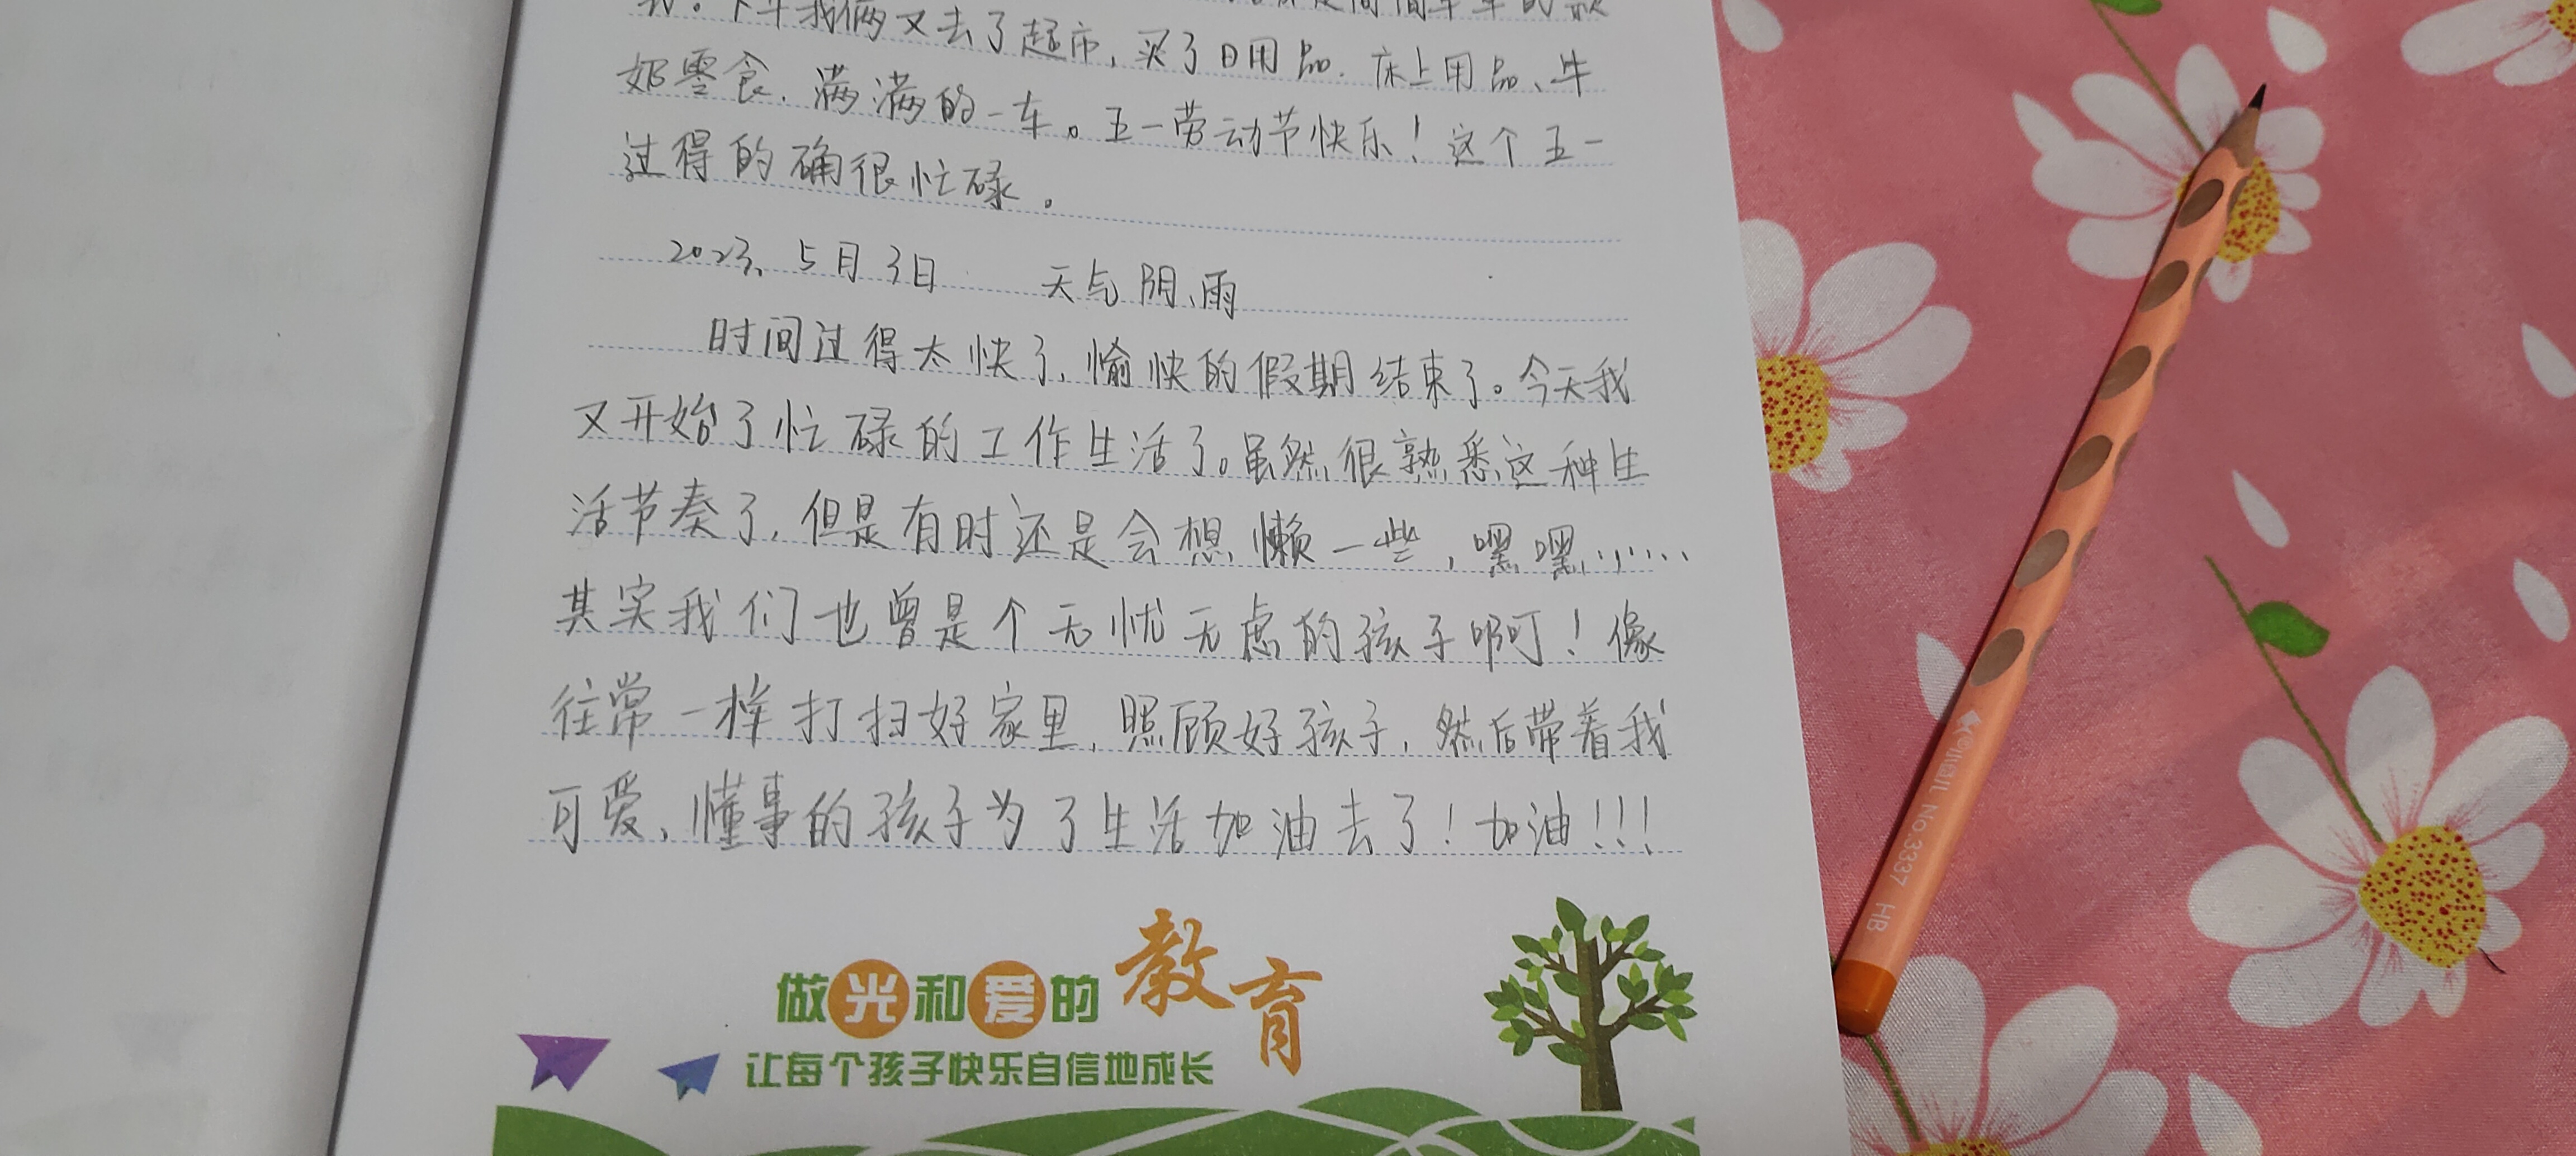 我。下午我俩又去了超市，买了日用品、床上用品、牛
奶零食，满满的一车。五一劳动节快乐！这个五一
过得的确很忙碌。
2023、5月3日 天气阴、雨
时间过得太快了，愉快的假期结束了。今天我
又开始了忙碌的工作生活了。虽然很熟悉这种生
活节奏了，但是有时还是会想懒一些，嘿嘿……
其实我们也曾是个无忧无虑的孩子啊！像
往常一样打扫好家里，照顾好孩子，然后带着我
可爱、懂事的孩子为了生活加油去了！加油！！！
做光和爱的教育
让每个孩子快乐自信地成长
No.3337 HB